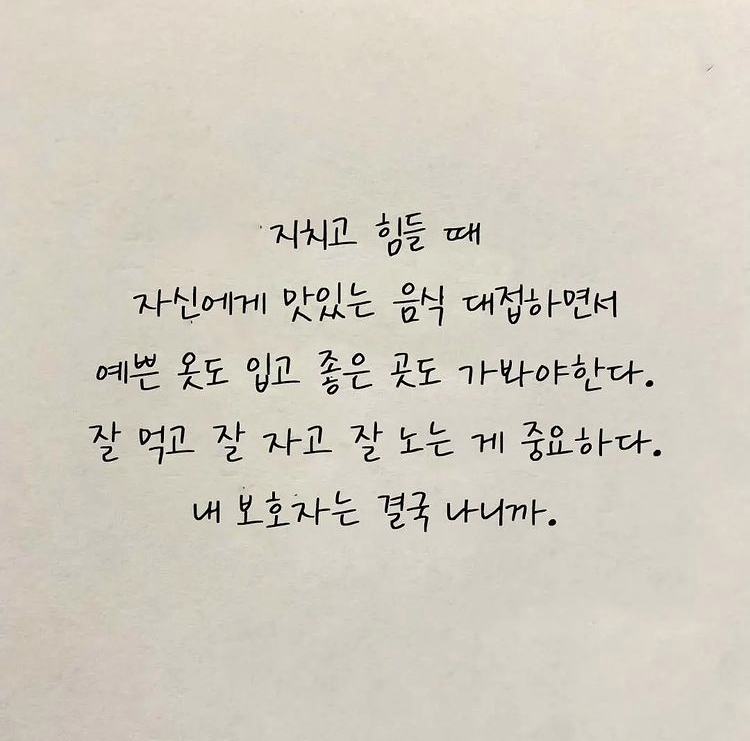 지치고 힘들 때
자신에게 맛있는 음식 대접하면서
예쁜 옷도 입고 좋은 곳도 가봐야한다.
잘 먹고 잘 자고 잘 노는 게 중요하다.
내 보호자는 결국 나니까.